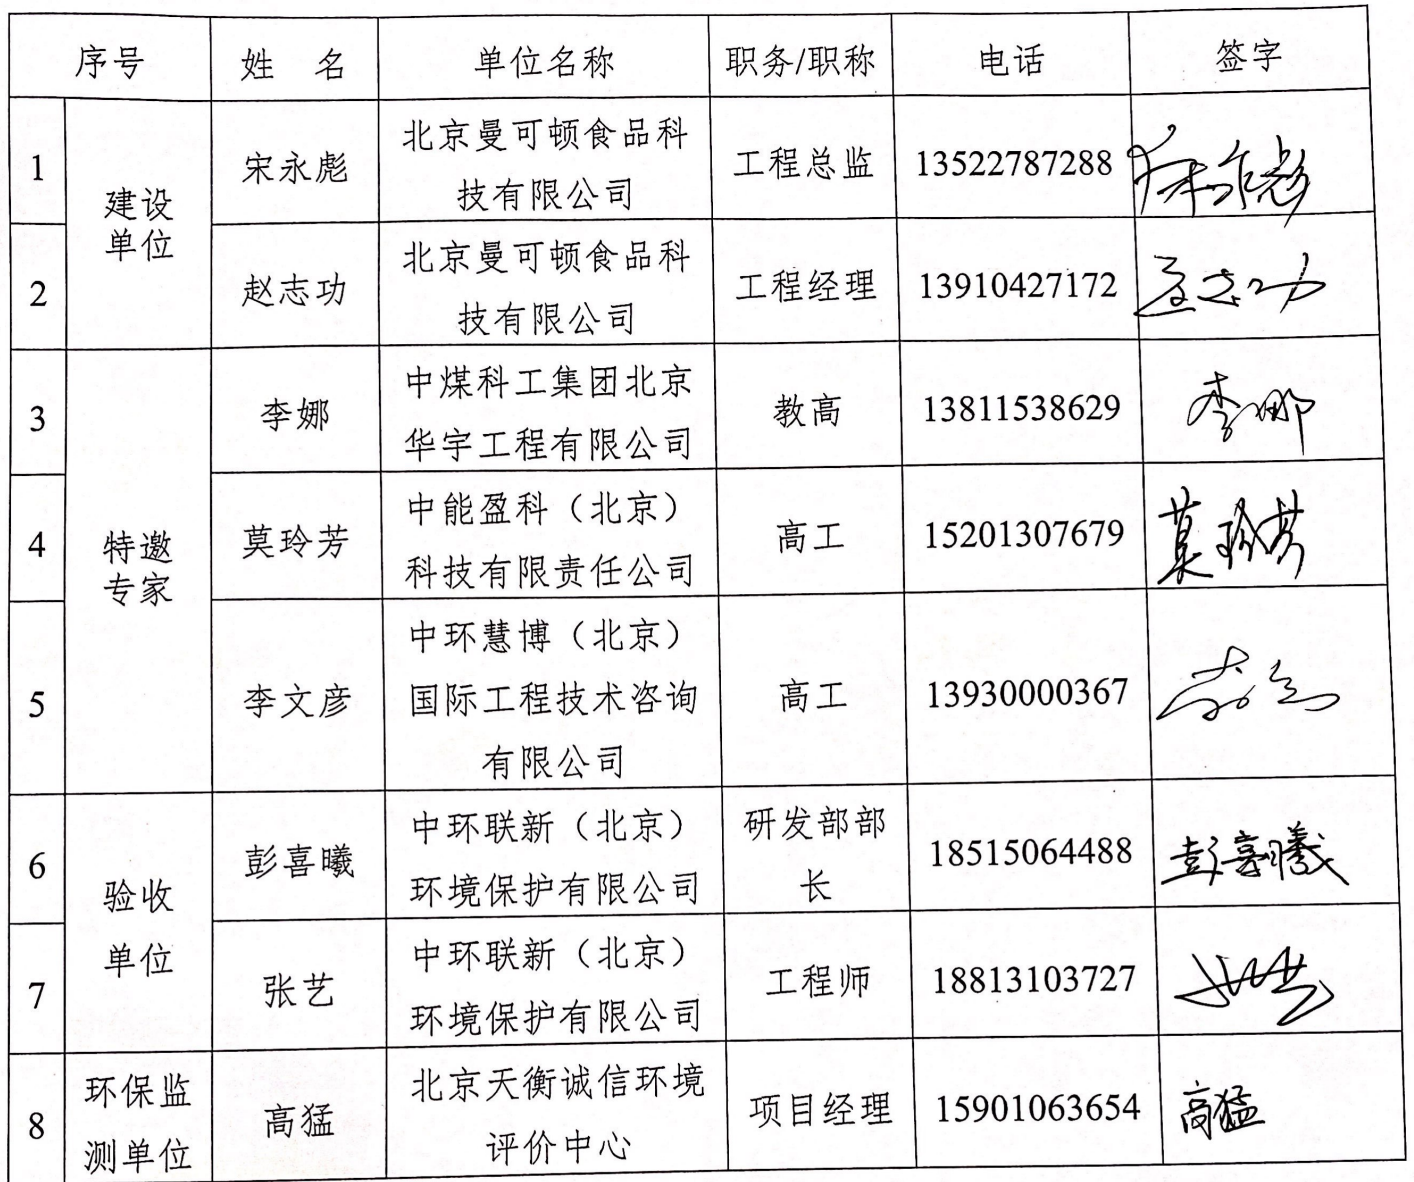 序号 姓 名 单位名称 职务/职称 电话 签字
1 建设单位 宋永彪 北京曼可顿食品科技有限公司 工程总监 13522787288 宋永彪
2 赵志功 北京曼可顿食品科技有限公司 工程经理 13910427172 赵志功
3 特邀专家 李娜 中煤科工集团北京华宇工程有限公司 教高 13811538629 李娜
4 莫玲芳 中能盈科（北京）科技有限责任公司 高工 15201307679 莫玲芳
5 李文彦 中环慧博（北京）国际工程技术咨询有限公司 高工 13930000367
6 验收单位 彭喜曦 中环联新（北京）环境保护有限公司 研发部部长 18515064488 彭喜曦
7 张艺 中环联新（北京）环境保护有限公司 工程师 18813103727 张艺
8 环保监测单位 高猛 北京天衡诚信环境评价中心 项目经理 15901063654 高猛